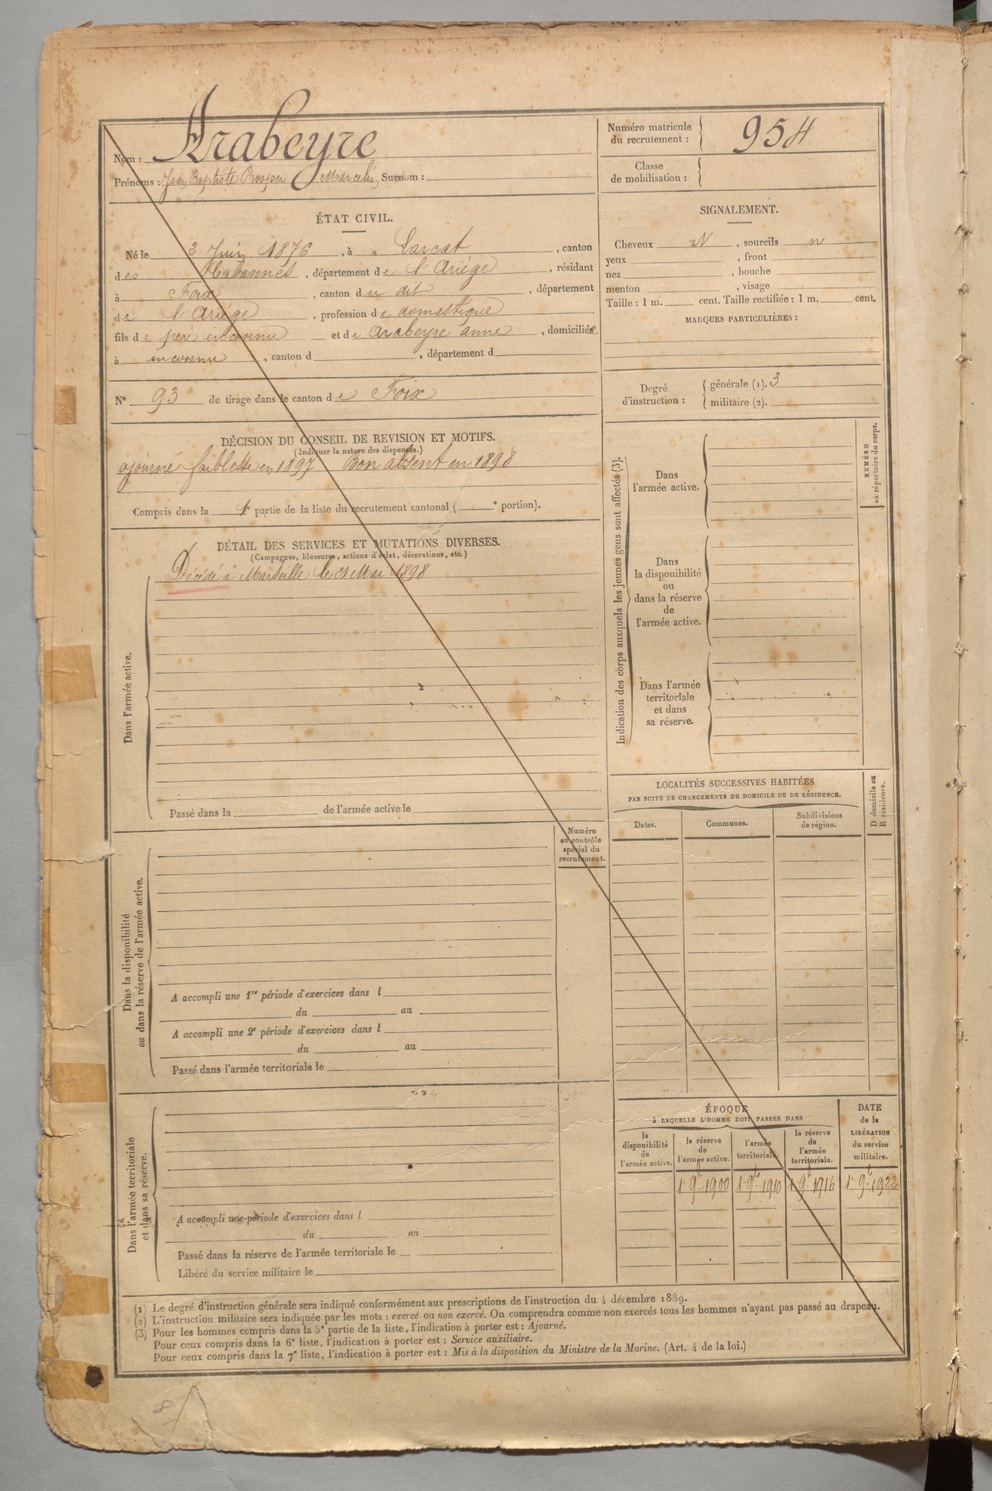 Nom : Arabeyre
Prénoms : Jean Baptiste Prosper Marcelin, Surnom :
Numéro matricule du recrutement : 954
Classe de mobilisation :
ÉTAT CIVIL.
Né le 3 Juin 1876, à Larcat, canton
des Cabannes, département de l'Ariège, résidant
à Foix, canton du dit, département
de l'Ariége, profession de domestique
fils de père inconnu et de Arabeyre anne, domiciliés
à inconnu, canton d , département d
N° 93 de tirage dans le canton de Foix
SIGNALEMENT.
Cheveux N, sourcils n
yeux , front
nez , bouche
menton , visage
Taille : 1 m. cent. Taille rectifiée : 1 m. cent.
MARQUES PARTICULIÈRES :
Degré d'instruction : générale (1). 3
militaire (2).
DÉCISION DU CONSEIL DE REVISION ET MOTIFS.
(Indiquer la nature des dispenses.)
ajourné faiblesse en 1897 Bon absent en 1898
Compris dans la 1e partie de la liste du recrutement cantonal ( e portion).
DÉTAIL DES SERVICES ET MUTATIONS DIVERSES.
(Campagnes, blessures, actions d'éclat, décorations, etc.)
Décédé à Marseille le 21 Mai 1898
Dans l'armée active.
Passé dans la de l'armée active le
Numéro au contrôle spécial du recrutement.
Dans la disponibilité
ou dans la réserve de l'armée active.
A accompli une 1re période d'exercices dans l
du au
A accompli une 2e période d'exercices dans l
du au
Passé dans l'armée territoriale le
Dans l'armée territoriale
et dans sa réserve.
A accompli une période d'exercices dans l
du au
Passé dans la réserve de l'armée territoriale le
Libéré du service militaire le
Indication des corps auxquels les jeunes gens sont affectés (3).
NUMÉRO
au répertoire du corps.
Dans
l'armée active.
Dans
la disponibilité
ou
dans la réserve
de
l'armée active.
Dans l'armée
territoriale
et dans
sa réserve.
LOCALITÉS SUCCESSIVES HABITÉES
PAR SUITE DE CHANGEMENTS DE DOMICILE OU DE RÉSIDENCE.
Dates. Communes. Subdivisions de région.
D domicile ou
R résidence.
ÉPOQUE
À LAQUELLE L'HOMME DOIT PASSER DANS
la disponibilité de l'armée active.
la réserve de l'armée active.
l'armée territoriale.
la réserve de l'armée territoriale.
DATE de la LIBÉRATION du service militaire.
1 9bre 1900 1 9bre 1910 1 9bre 1916 1 9bre 1922
(1) Le degré d'instruction générale sera indiqué conformément aux prescriptions de l'instruction du 4 décembre 1889.
(2) L'instruction militaire sera indiquée par les mots : exercé ou non exercé. On comprendra comme non exercés tous les hommes n'ayant pas passé au drapeau.
(3) Pour les hommes compris dans la 5e partie de la liste, l'indication à porter est : Ajourné.
Pour ceux compris dans la 6e liste, l'indication à porter est : Service auxiliaire.
Pour ceux compris dans la 7e liste, l'indication à porter est : Mis à la disposition du Ministre de la Marine. (Art. 4 de la loi.)